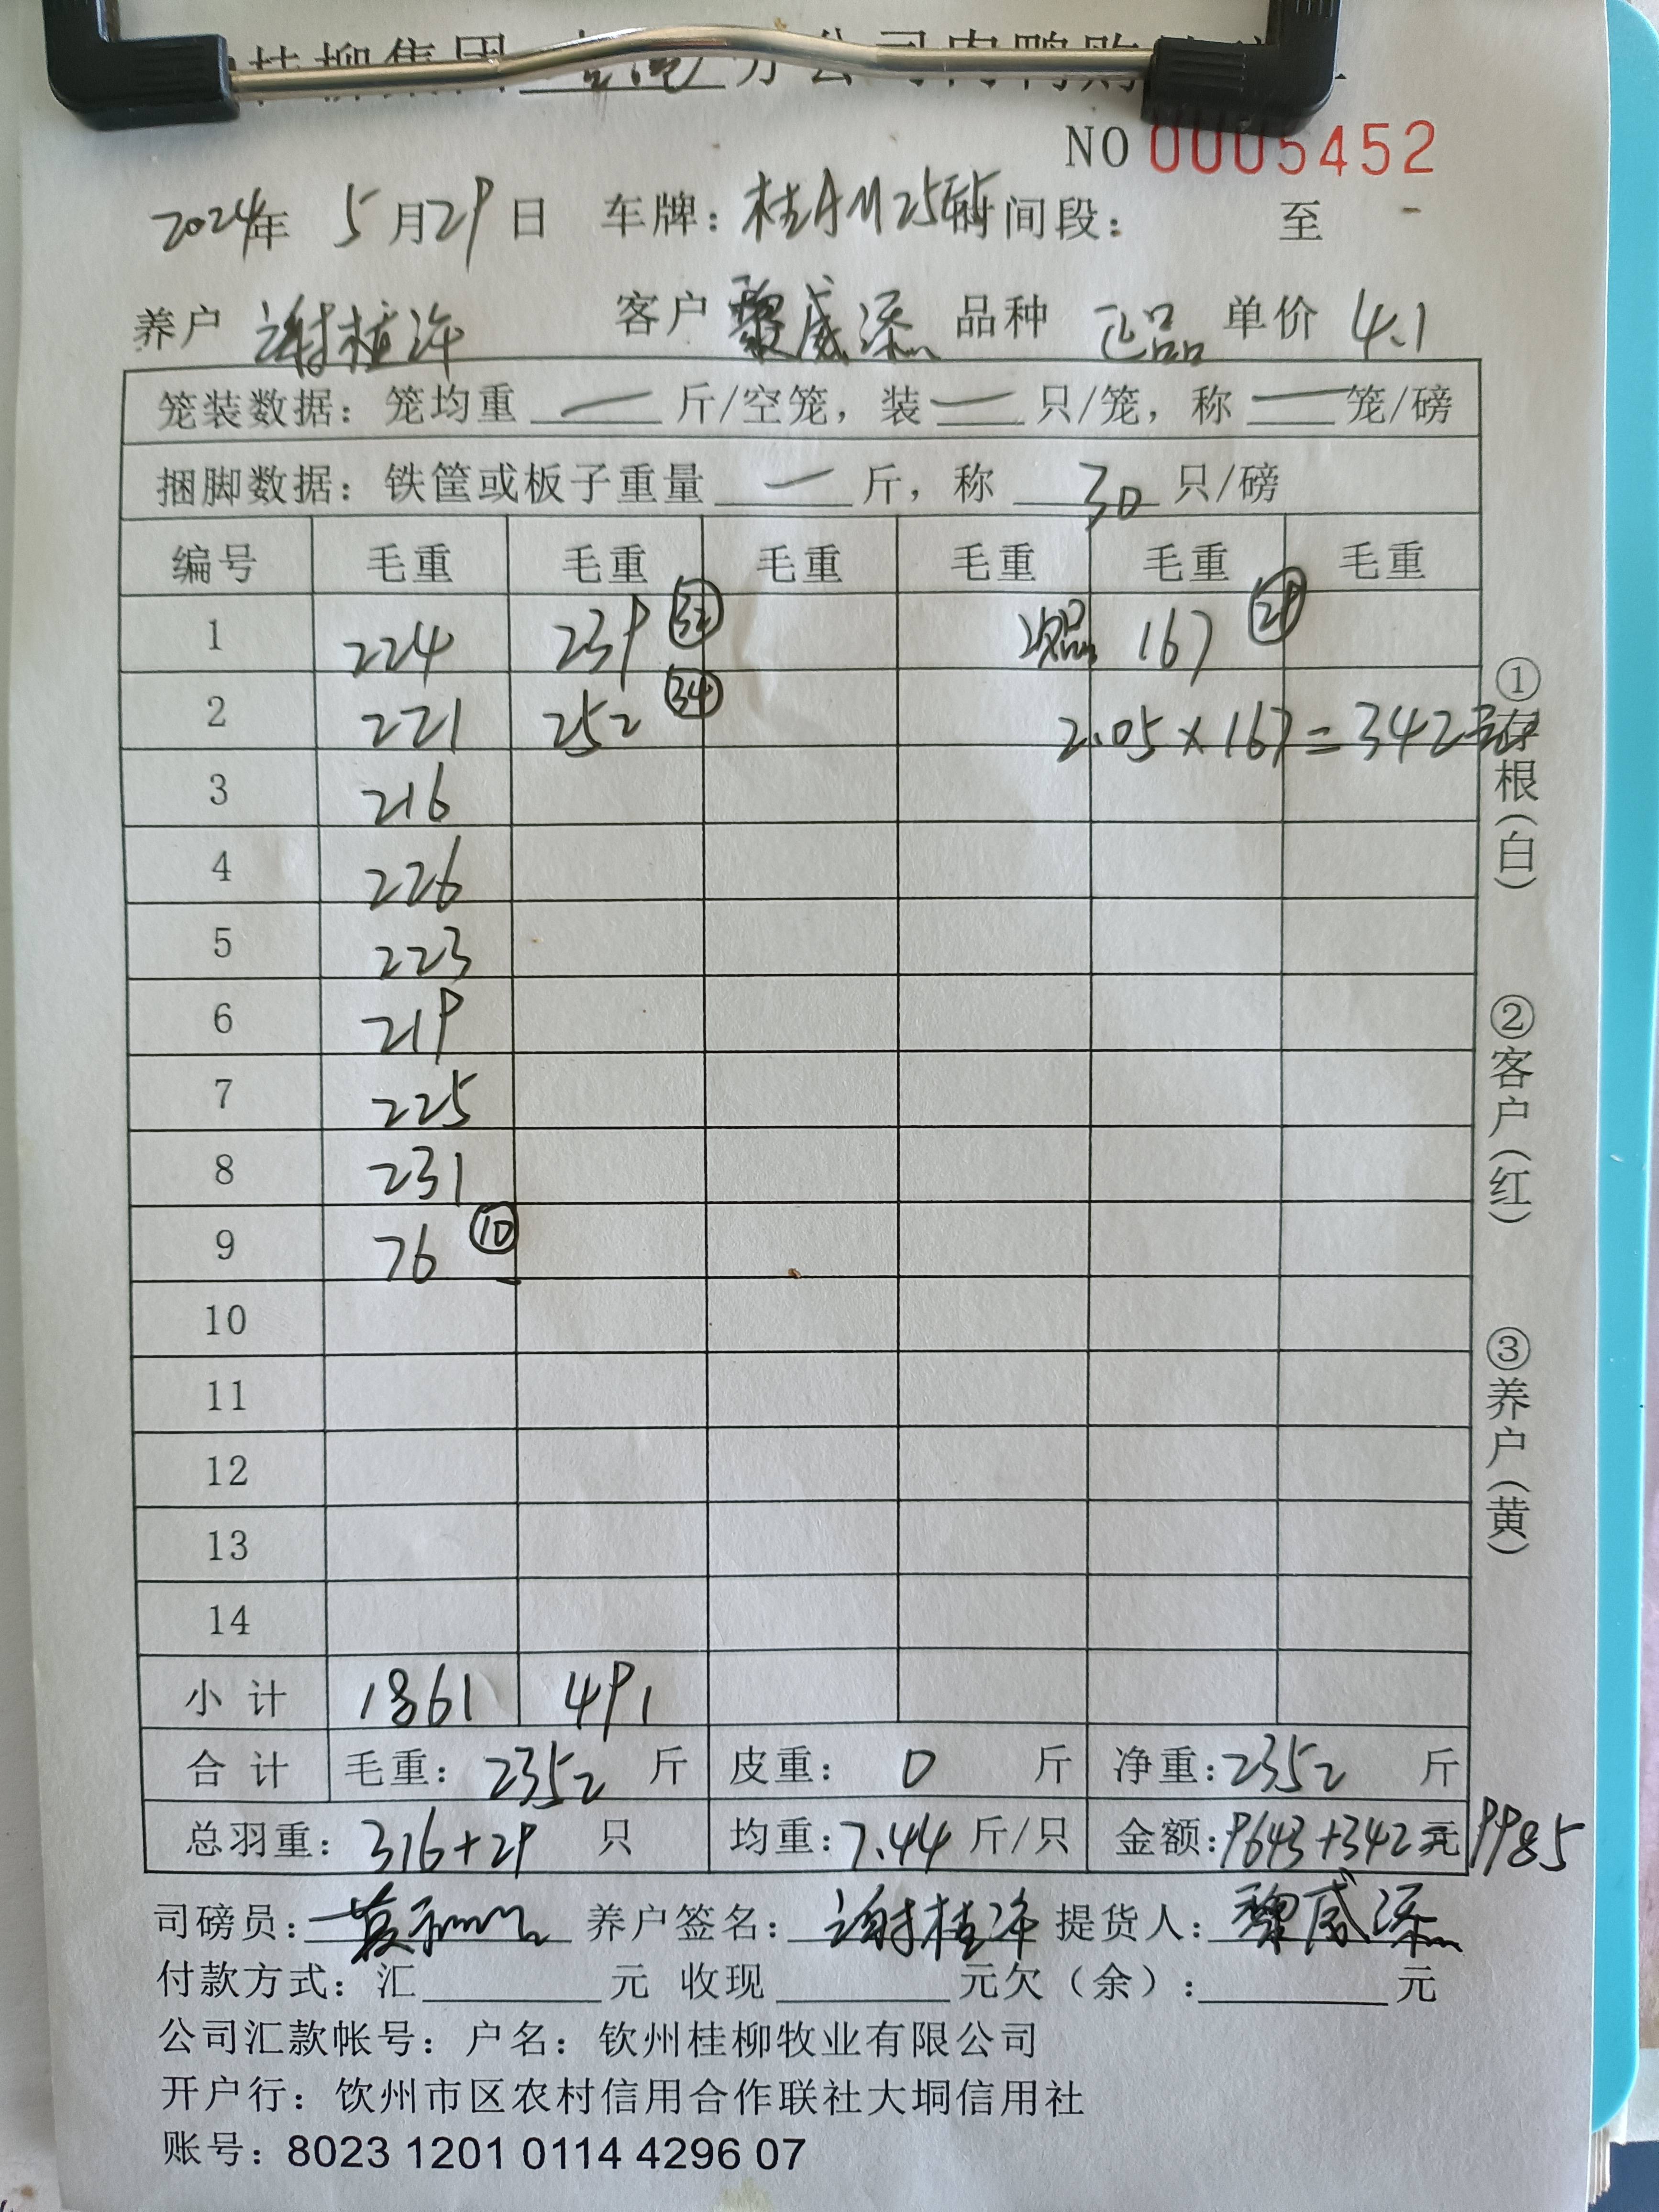 桂柳集团 分公司肉鸭购
NO 0005452
2024年 5月29日 车牌：桂AM25 时间段： 至 -
养户 谢植许 客户 黎威添 品种 正品 单价 4.1
笼装数据：笼均重 — 斤/空笼，装 — 只/笼，称 — 笼/磅
捆脚数据：铁筐或板子重量 — 斤，称 30 只/磅
编号 毛重 毛重 毛重 毛重 毛重 毛重
1 224 239 次品 167 29
2 221 252 34 2.05×167=342元
3 216
4 226
5 223
6 219
7 225
8 231
9 76 10
10
11
12
13
14
小计 1861 491
合计 毛重：2352 斤 皮重：0 斤 净重：2352 斤
总羽重：316+29 只 均重：7.44 斤/只 金额：9643+342元 9985
司磅员： 养户签名：谢植许 提货人：黎威添
付款方式：汇 元 收现 元欠（余）： 元
公司汇款帐号：户名：钦州桂柳牧业有限公司
开户行：饮州市区农村信用合作联社大垌信用社
账号：8023 1201 0114 4296 07
①存根（白）
②客户（红）
③养户（黄）